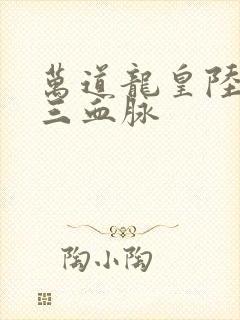 萬道龍皇陸
三血脉
陶小陶